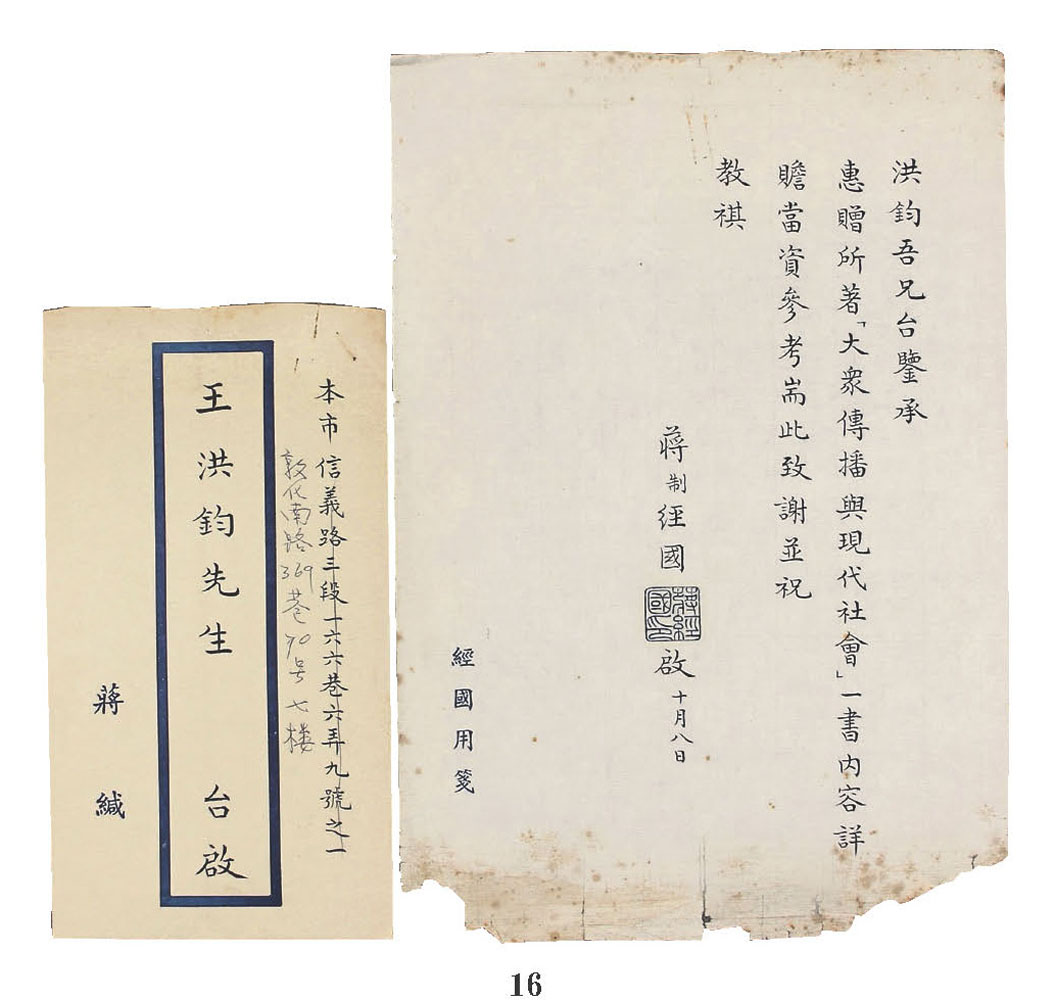 洪鈞吾兄台鑒承
惠贈所著「大衆傳播與現代社會」一書內容詳
贍當資參考耑此致謝並祝
教祺
蔣制經國
蔣經國印
啟 十月八日
經國用箋
本市信義路三段一六六巷六弄九號之一
敦化南路369巷90号七楼
王洪鈞先生 台啟
蔣 緘
16